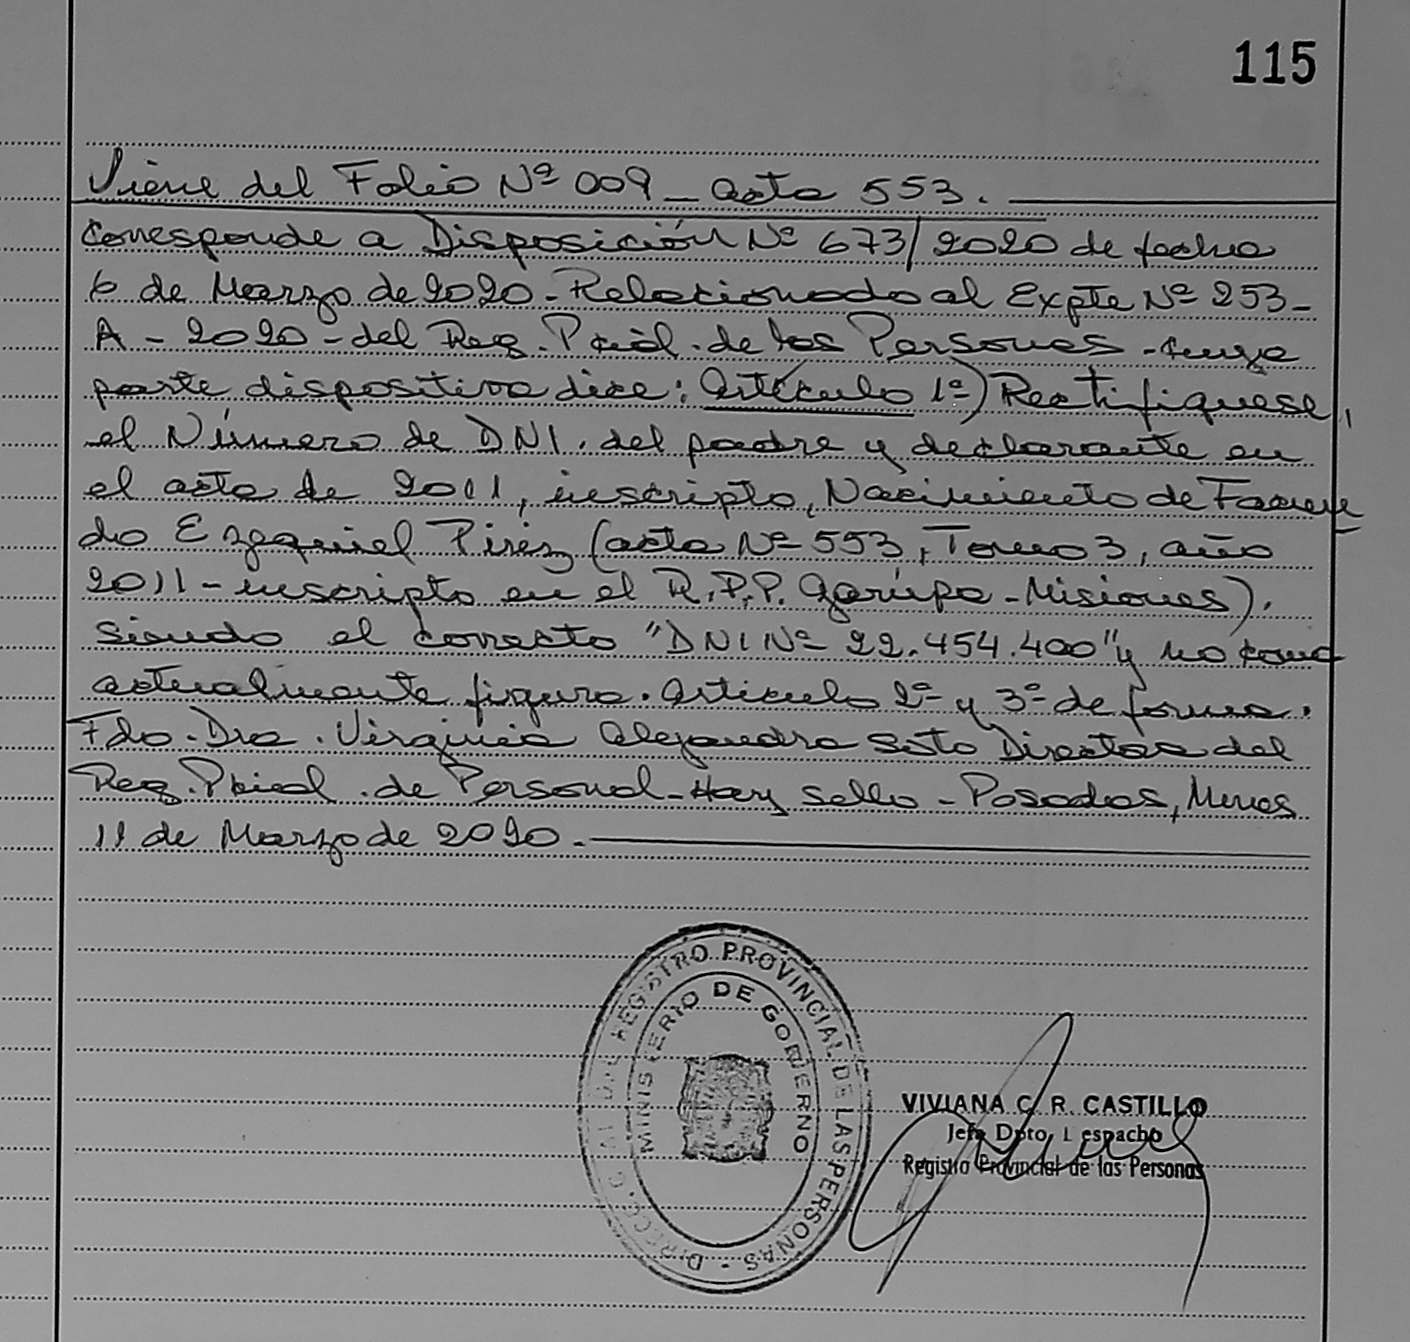 115
Viene del Folio Nº 009 - acta 553.
Corresponde a Disposición Nº 673/2020 de fecha
6 de Marzo de 2020 - Relacionado al Expte Nº 253-
A - 2020 - del Reg. Pcial. de las Personas - cuya
parte dispositiva dice: Artículo 1º) Rectifiquese,
el Número de DNI. del padre y declarante en
el acta de 2011, inscripto, Nacimiento de Facun
do Ezequiel Pirez (acta Nº 553, Tomo 3, año
2011 - inscripto en el R.P.P. Garupa - Misiones).
siendo el correcto "DNI Nº 22.454.400" y no como
actualmente figura. Articulo 2º y 3º de forma.
Fdo. Dra. Virginia Alejandra Soto Directora del
Reg. Pcial. de Personal - Hay sello - Posadas, Mnes
11 de Marzo de 2020.
REGISTRO PROVINCIAL DE LAS PERSONAS
MINISTERIO DE GOBIERNO
VIVIANA C. R. CASTILLO
Jefa Dpto. Despacho
Registro Provincial de las Personas